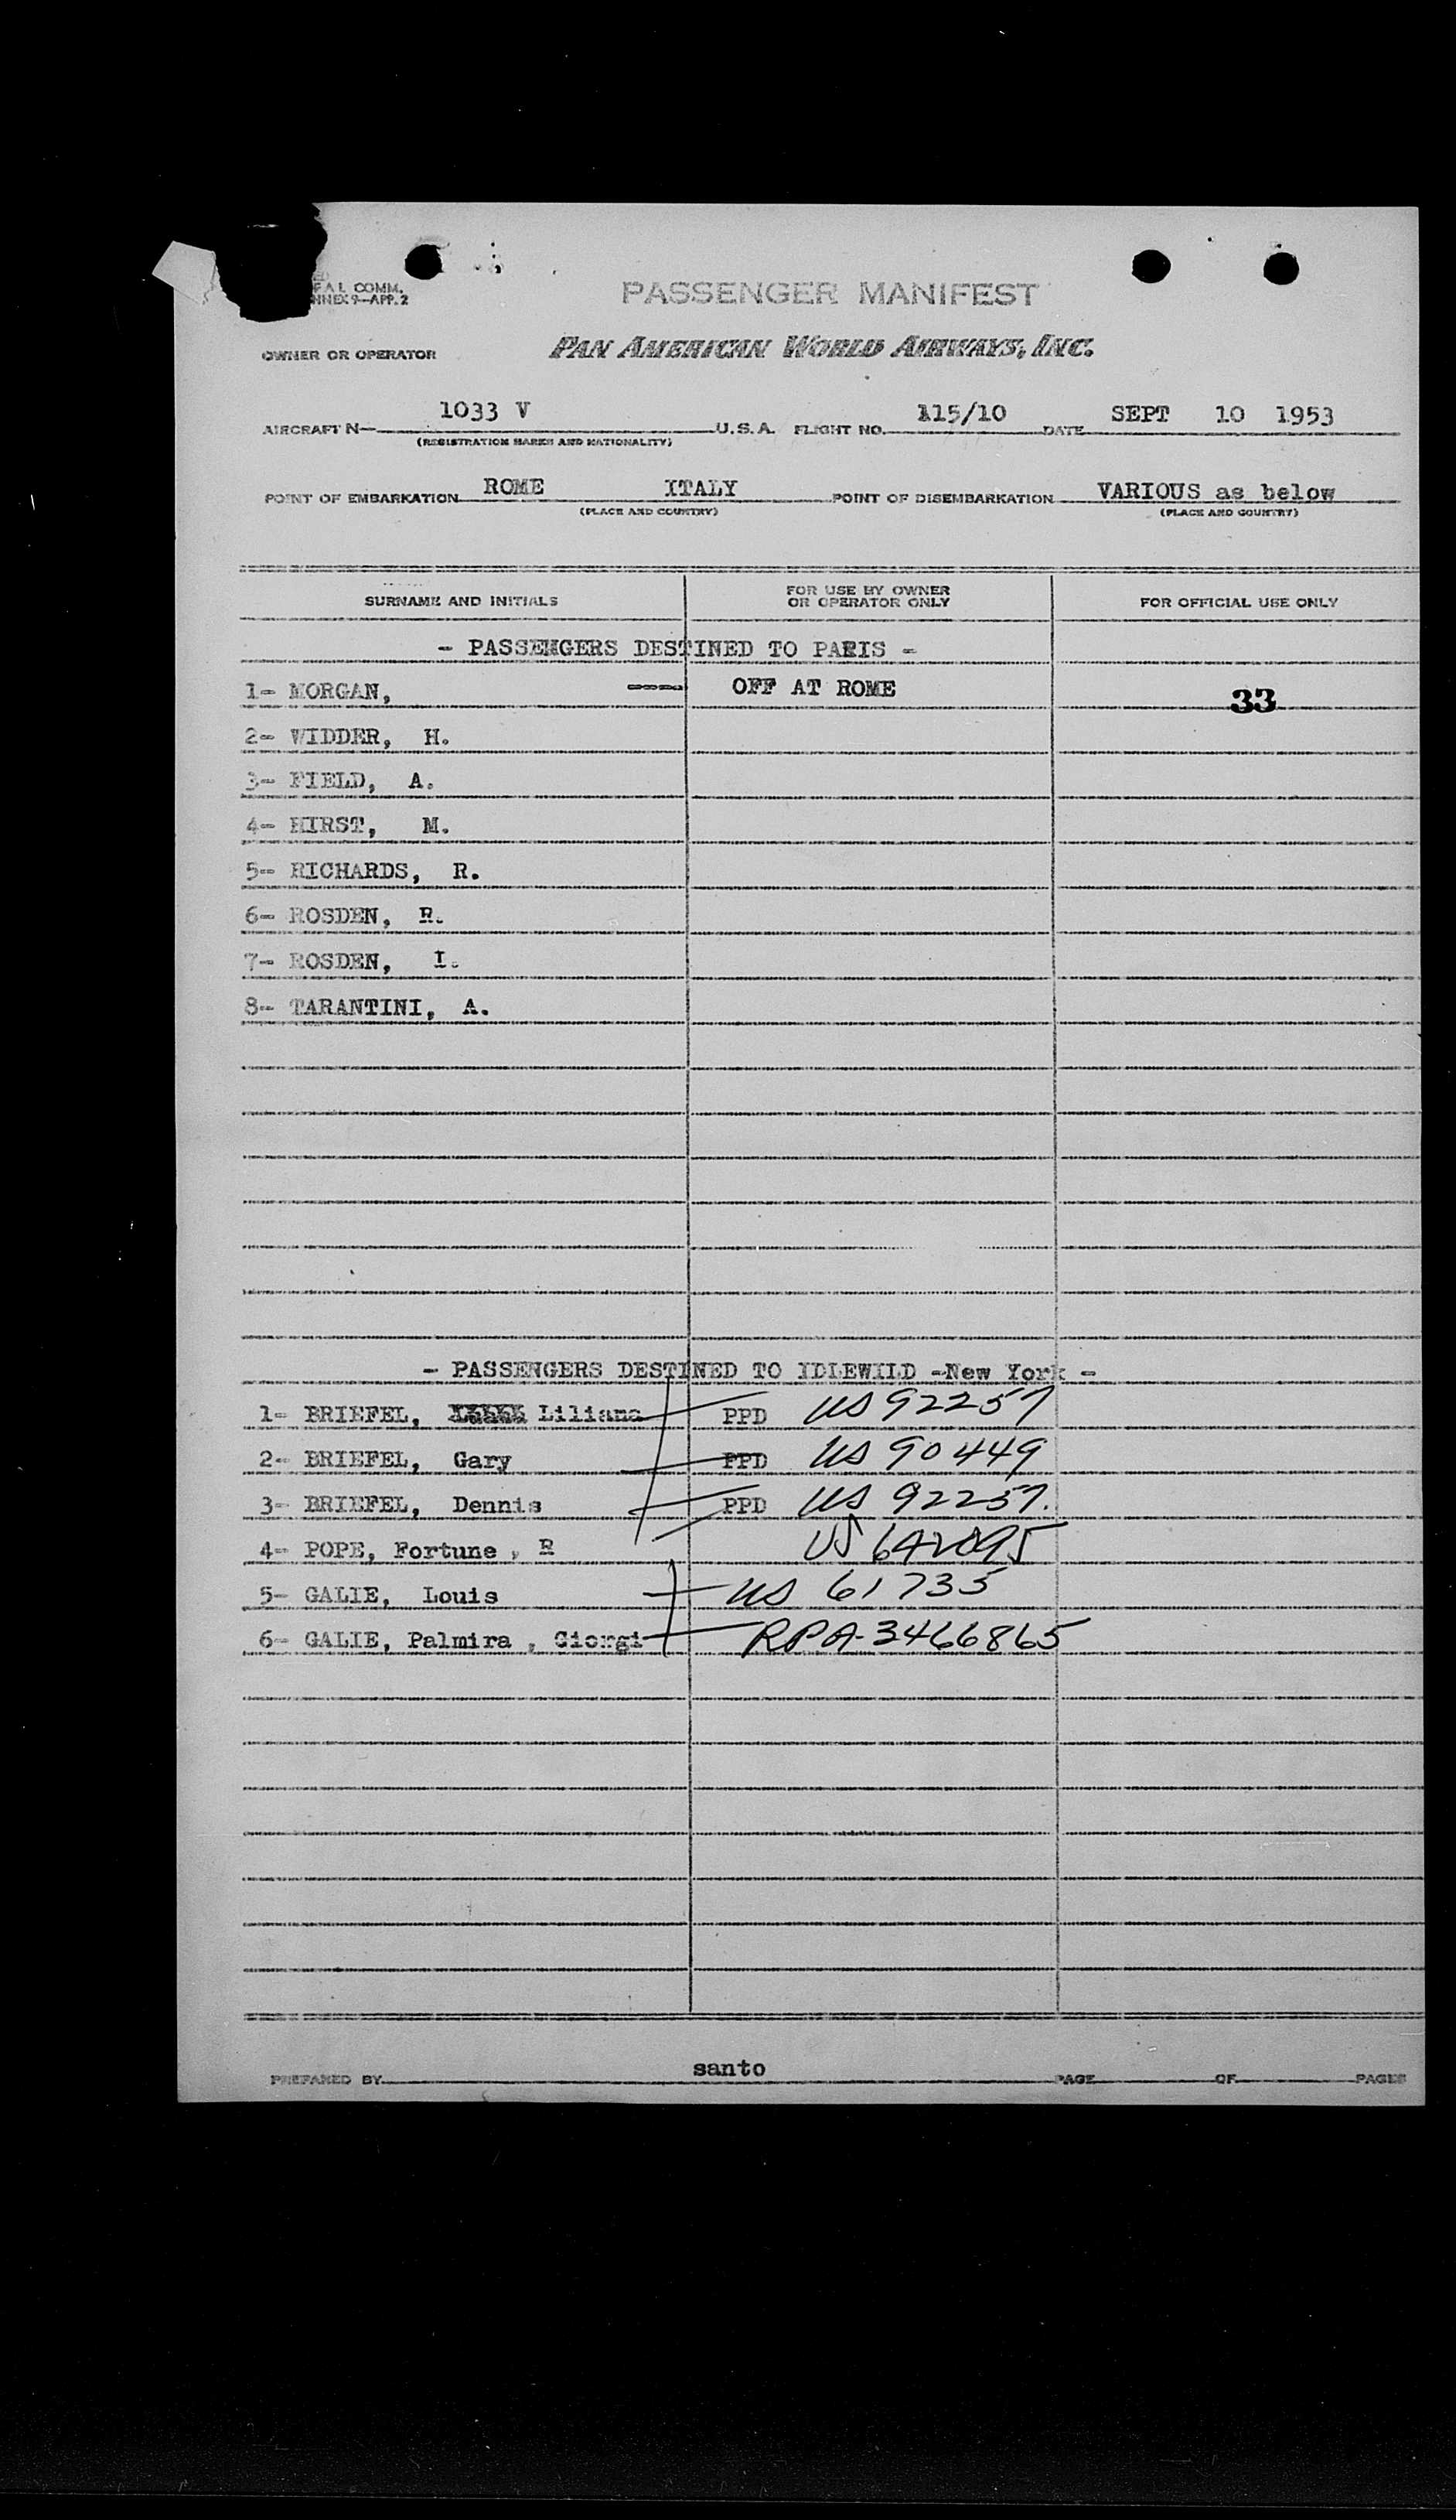 F.A.L. COMM.
ANNEX 9—APP. 2
PASSENGER MANIFEST
OWNER OR OPERATOR PAN AMERICAN WORLD AIRWAYS, INC.
AIRCRAFT N— 1033 V U.S.A. FLIGHT NO. 115/10 DATE SEPT 10 1953
(REGISTRATION MARKS AND NATIONALITY)
POINT OF EMBARKATION ROME ITALY POINT OF DISEMBARKATION VARIOUS as below
(PLACE AND COUNTRY) (PLACE AND COUNTRY)
SURNAME AND INITIALS FOR USE BY OWNER OR OPERATOR ONLY FOR OFFICIAL USE ONLY
- PASSENGERS DESTINED TO PARIS -
1- MORGAN, ---- OFF AT ROME 33
2- WIDDER, H.
3- FIELD, A.
4- HIRST, M.
5- RICHARDS, R.
6- ROSDEN, R.
7- ROSDEN, I.
8- TARANTINI, A.
- PASSENGERS DESTINED TO IDLEWILD -New York -
1- BRIEFEL, Liliana PPD US 92257
2- BRIEFEL, Gary PPD US 90449
3- BRIEFEL, Dennis PPD US 92257.
4- POPE, Fortune , R US 642095
5- GALIE, Louis US 61735
6- GALIE, Palmira , Giorgi RPA-3466865
PREPARED BY santo PAGE OF PAGES